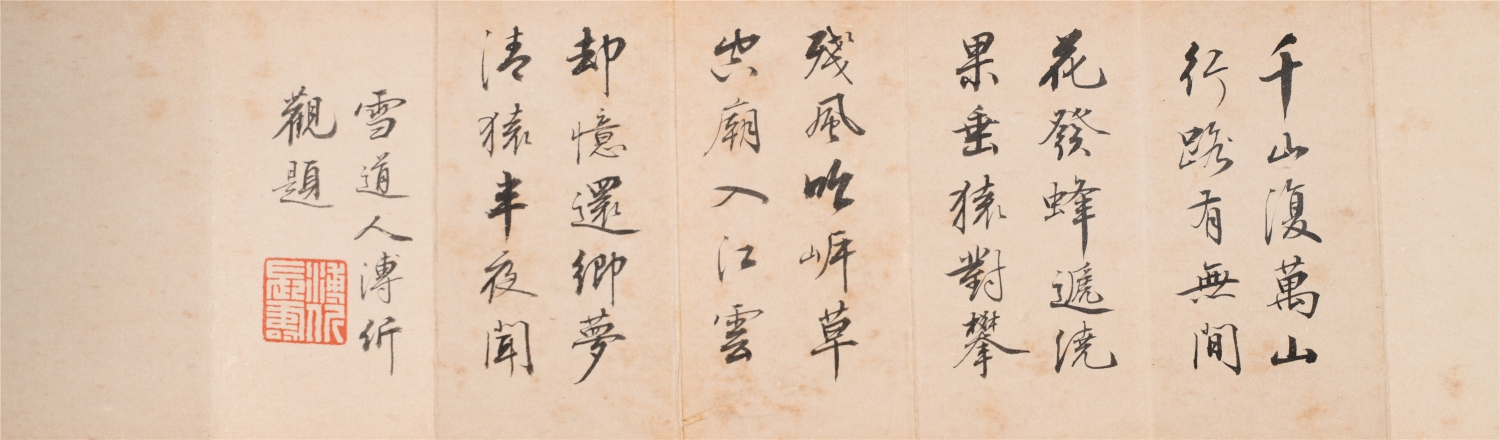 千山復萬山
行路有無間
花發蜂遞繞
果垂猿對攀
殘風吹岸草
古廟入江雲
却憶還鄉夢
清猿半夜聞
雪道人溥伒
觀題